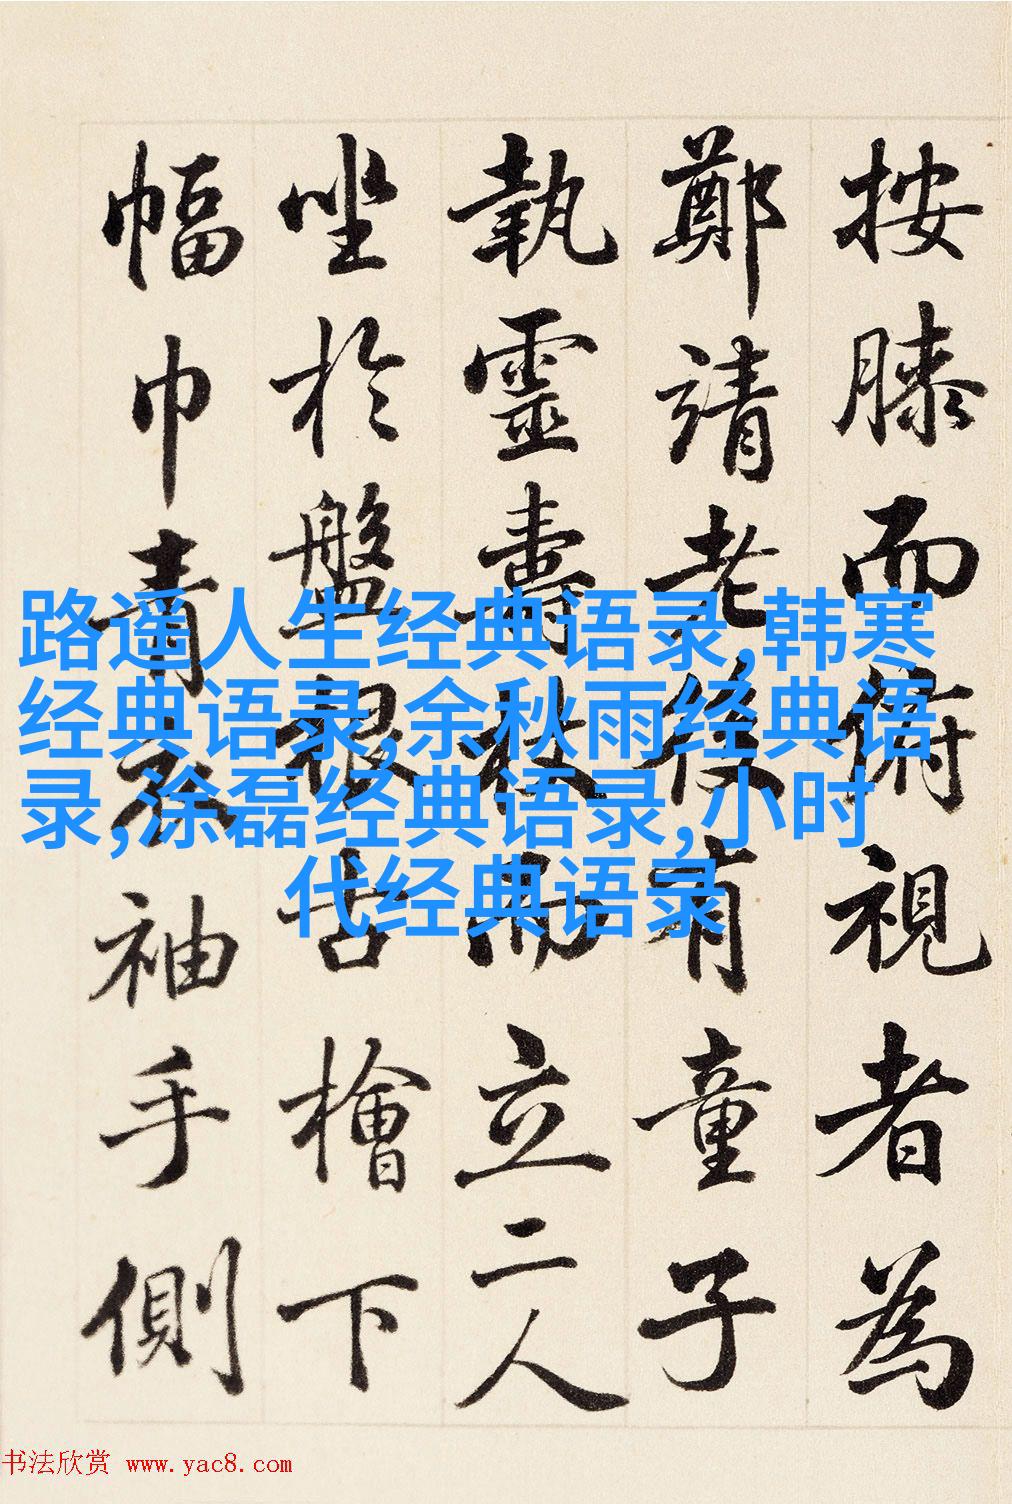 按膝而俯視者為
鄭靖老後有童子
執靈壽杖而立二人
坐於盤根古檜下
幅巾青衣袖手側
路遥人生经典语录,韩寒
经典语录,余秋雨经典语
录,涂磊经典语录,小时
代经典语录
书法欣赏 www.yac8.com